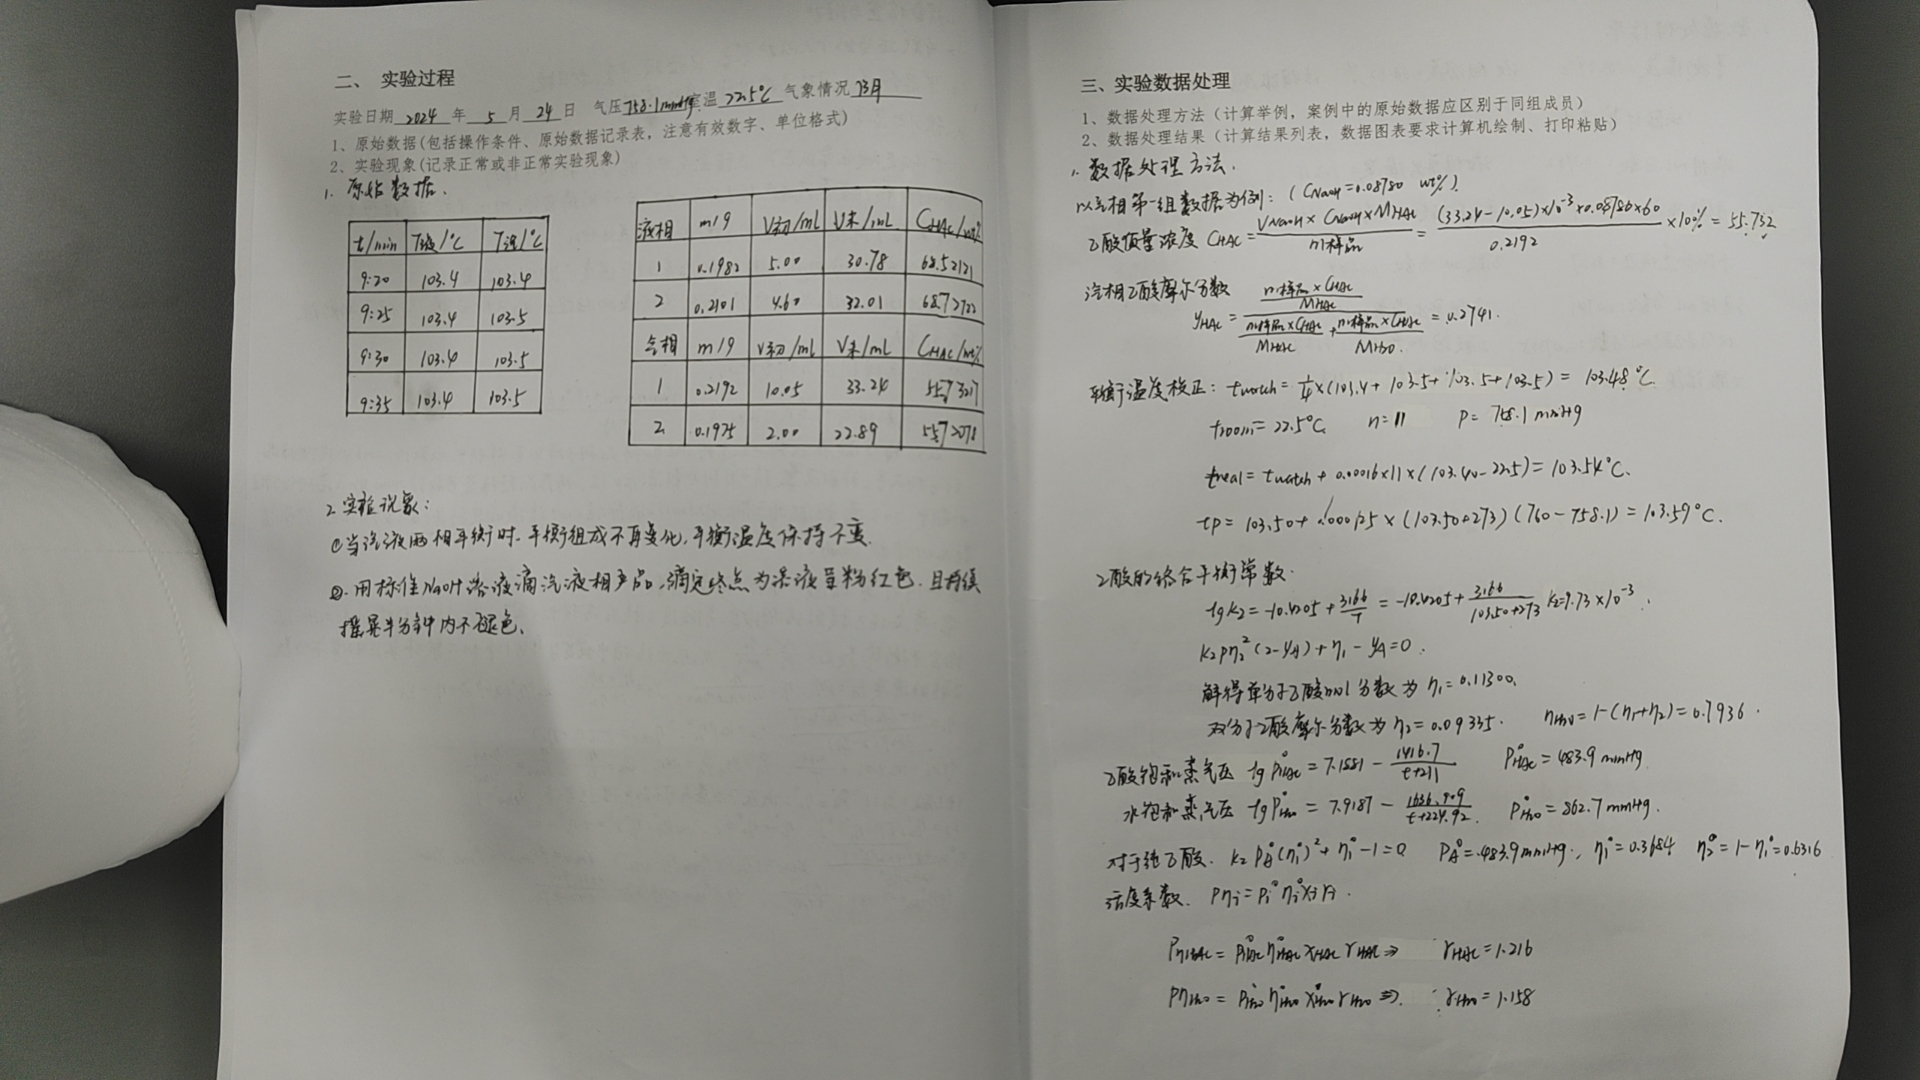 二、 实验过程
实验日期 2024 年 5 月 24 日 气压758.1mmHg室温 22.5℃ 气象情况 阴
1、原始数据(包括操作条件、原始数据记录表，注意有效数字、单位格式)
2、实验现象(记录正常或非正常实验现象)
1. 原始数据.
t/min T液/℃ T汽/℃
9:20 103.4 103.4
9:25 103.4 103.5
9:30 103.4 103.5
9:35 103.4 103.5
液相 m/g V初/ml V末/ml CHAc/wt%
1 0.1982 5.00 30.78 68.52121
2 0.2101 4.60 32.01 68.72722
气相 m/g V初/ml V末/ml CHAc/wt%
1 0.2192 10.05 33.24 55.73217
2 0.1975 2.00 22.89 55.72078
2. 实验现象:
①当汽液两相平衡时.平衡组成不再变化,平衡温度保持不变.
②.用标准NaOH溶液滴汽液相产品,滴定终点为溶液呈粉红色.且持续
摇晃半分钟内不褪色.
三、实验数据处理
1、数据处理方法（计算举例，案例中的原始数据应区别于同组成员）
2、数据处理结果（计算结果列表，数据图表要求计算机绘制、打印粘贴）
1. 数据处理方法.
以气相第一组数据为例: (CNaOH=0.08780 wt%)
乙酸质量浓度 CHAc= VNaOH×CNaOH×MHAc / m样品 = (33.24-10.05)×10⁻³×0.08780×60 / 0.2192 ×100% = 55.732
汽相乙酸摩尔分数
yHAc = (m样品×CHAc / MHAc) / (m样品×CHAc / MHAc + m样品×CHAc / MH2O) = 0.2741.
平衡温度校正: twatch= 1/4×(103.4+103.5+103.5+103.5)= 103.48℃
troom=22.5℃ n=11 p= 758.1 mmHg
treal= twatch + 0.00016×11×(103.40-22.5)=103.54℃.
tp= 103.50+0.000125×(103.50+273)(760-758.1)=103.59℃.
乙酸的缔合平衡常数.
lgK2=-10.4205+3166/T = -10.4205+3166/103.50+273 K2=9.73×10⁻³.
K2Pη1²(2-yA)+η1-yA=0.
解得单分子乙酸mol分数为η1=0.11300.
双分子乙酸摩尔分数为η2=0.09335. ηH2O=1-(η1+η2)=0.7936.
乙酸饱和蒸气压 lgP°HAc= 7.1881 - 1416.7/t+211 P°HAc=483.9 mmHg.
水饱和蒸气压 lgP°H2O = 7.9187 - 1636.909/t+224.92. P°H2O=862.7mmHg.
对于纯乙酸. K2P°A(η1°)²+η1°-1=0 P°A=483.9mmHg., η1°=0.3684 η2°=1-η1°=0.6316
活度系数. Pηi=Pi°ηi°xiri.
PηHAc= P°HAcη°HAcxHAcrHAc⇒ rHAc=1.216
PηH2O= P°H2Oη°H2OxH2OrH2O⇒. rH2O=1.158